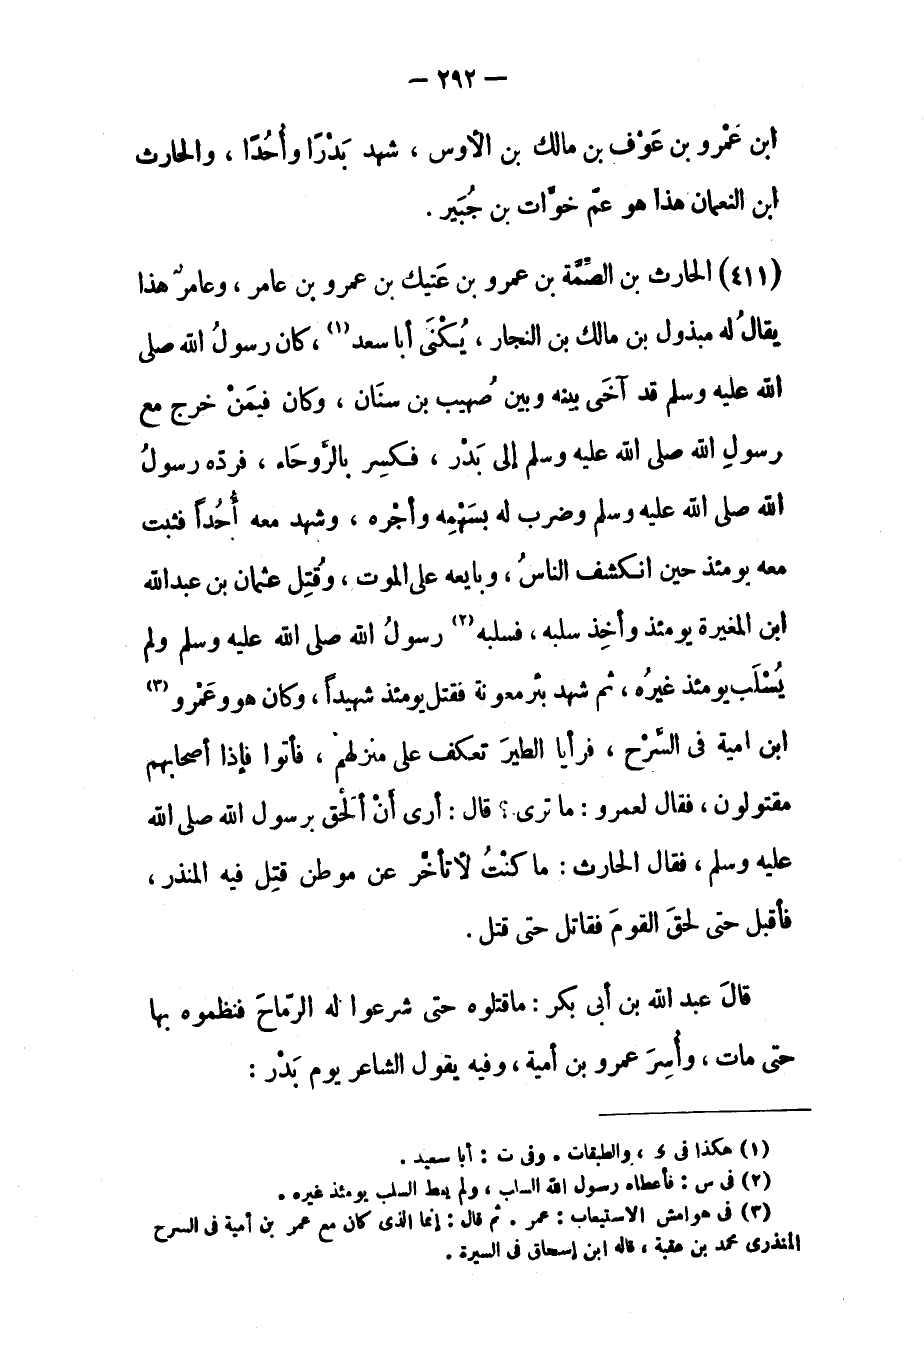 — ٢٩٢ —
ابن عَمْرو بن عَوْف بن مالك بن الأوس ، شهد بَدْرًا وأُحُدًا ، والحارث
ابن النعمان هذا هو عمّ خوَّات بن جُبَير .
(٤١١) الحارث بن الصِّمَّة بن عمرو بن عَتيك بن عمرو بن عامر ، وعامرٌ هذا
يقالُ له مبذول بن مالك بن النجار ، يُكْنَى أبا سعد (١) ، كان رسولُ الله صلى
الله عليه وسلم قد آخَى بينه وبين صُهيب بن سنَان ، وكان فيمَنْ خرج مع
رسولِ الله صلى الله عليه وسلم إلى بَدْر ، فكسِر بالرَّوحَاء ، فردّه رسولُ
الله صلى الله عليه وسلم وضرب له بسَهْمِه وأجْره ، وشهد معه أُحُداً فثبت
معه يومئذ حين انكشف الناسُ ، وبايعه على الموت ، وقُتِل عثمان بن عبدالله
ابن المغيرة يومئذ وأخِذ سلبه ، فسلبه (٢) رسولُ الله صلى الله عليه وسلم ولم
يُسْلَب يومئذ غيرُه ، ثم شهد بئر معونة فقتل يومئذ شهيداً ، وكان هو وعَمْرو (٣)
ابن امية فى السَّرْح ، فرأيا الطيرَ تعكف على منزلهم ، فأتوا فإذا أصحابهم
مقتولون ، فقال لعمرو : ما ترى ؟ قال : أرى أَنْ ألَحْق برسول الله صلى الله
عليه وسلم ، فقال الحارث : ما كنْتُ لأتأخَّر عن موطن قتِل فيه المنذر ،
فأقبل حتى لحقَ القومَ فقاتل حتى قتل .
قالَ عبد الله بن أبى بكر : ماقتلوه حتى شرعوا له الرّماحَ فنظموه بها
حتى مات ، وأُسِرَ عمرو بن أمية ، وفيه يقول الشاعر يوم بَدْر :
(١) هكذا فى ى ، والطبقات . وفى ت : أبا سعيد .
(٢) فى س : فأعطاه رسول الله السلب ، ولم يعط السلب يومئذ غيره .
(٣) فى هوامش الاستيعاب : عمر . ثم قال : إنما الذى كان مع عمر بن أمية فى السرح
المنذرى محمد بن عقبة ، قاله ابن إسحاق فى السيرة .